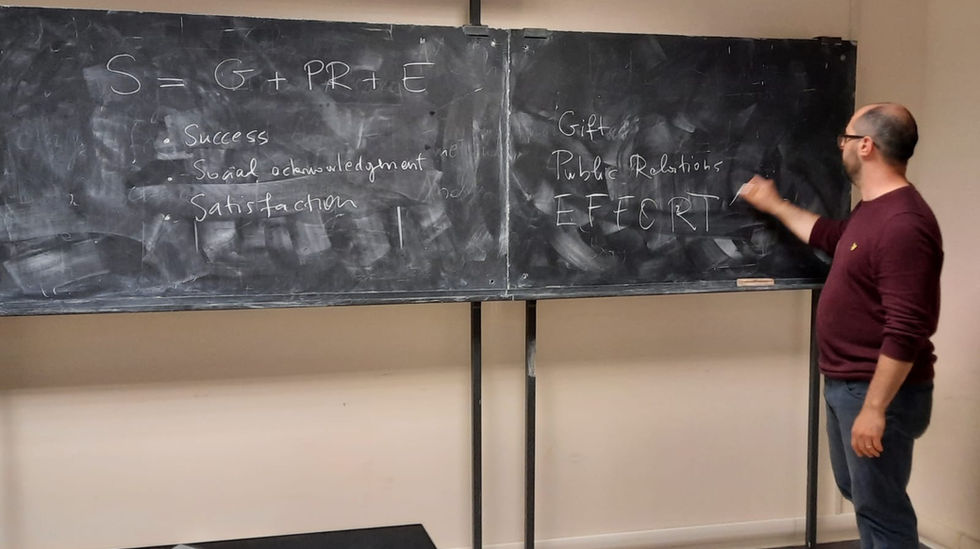 S = G + PR + E
• Success
• Social acknowledgment
• Satisfaction
Gift
Public Relations
EFFORT